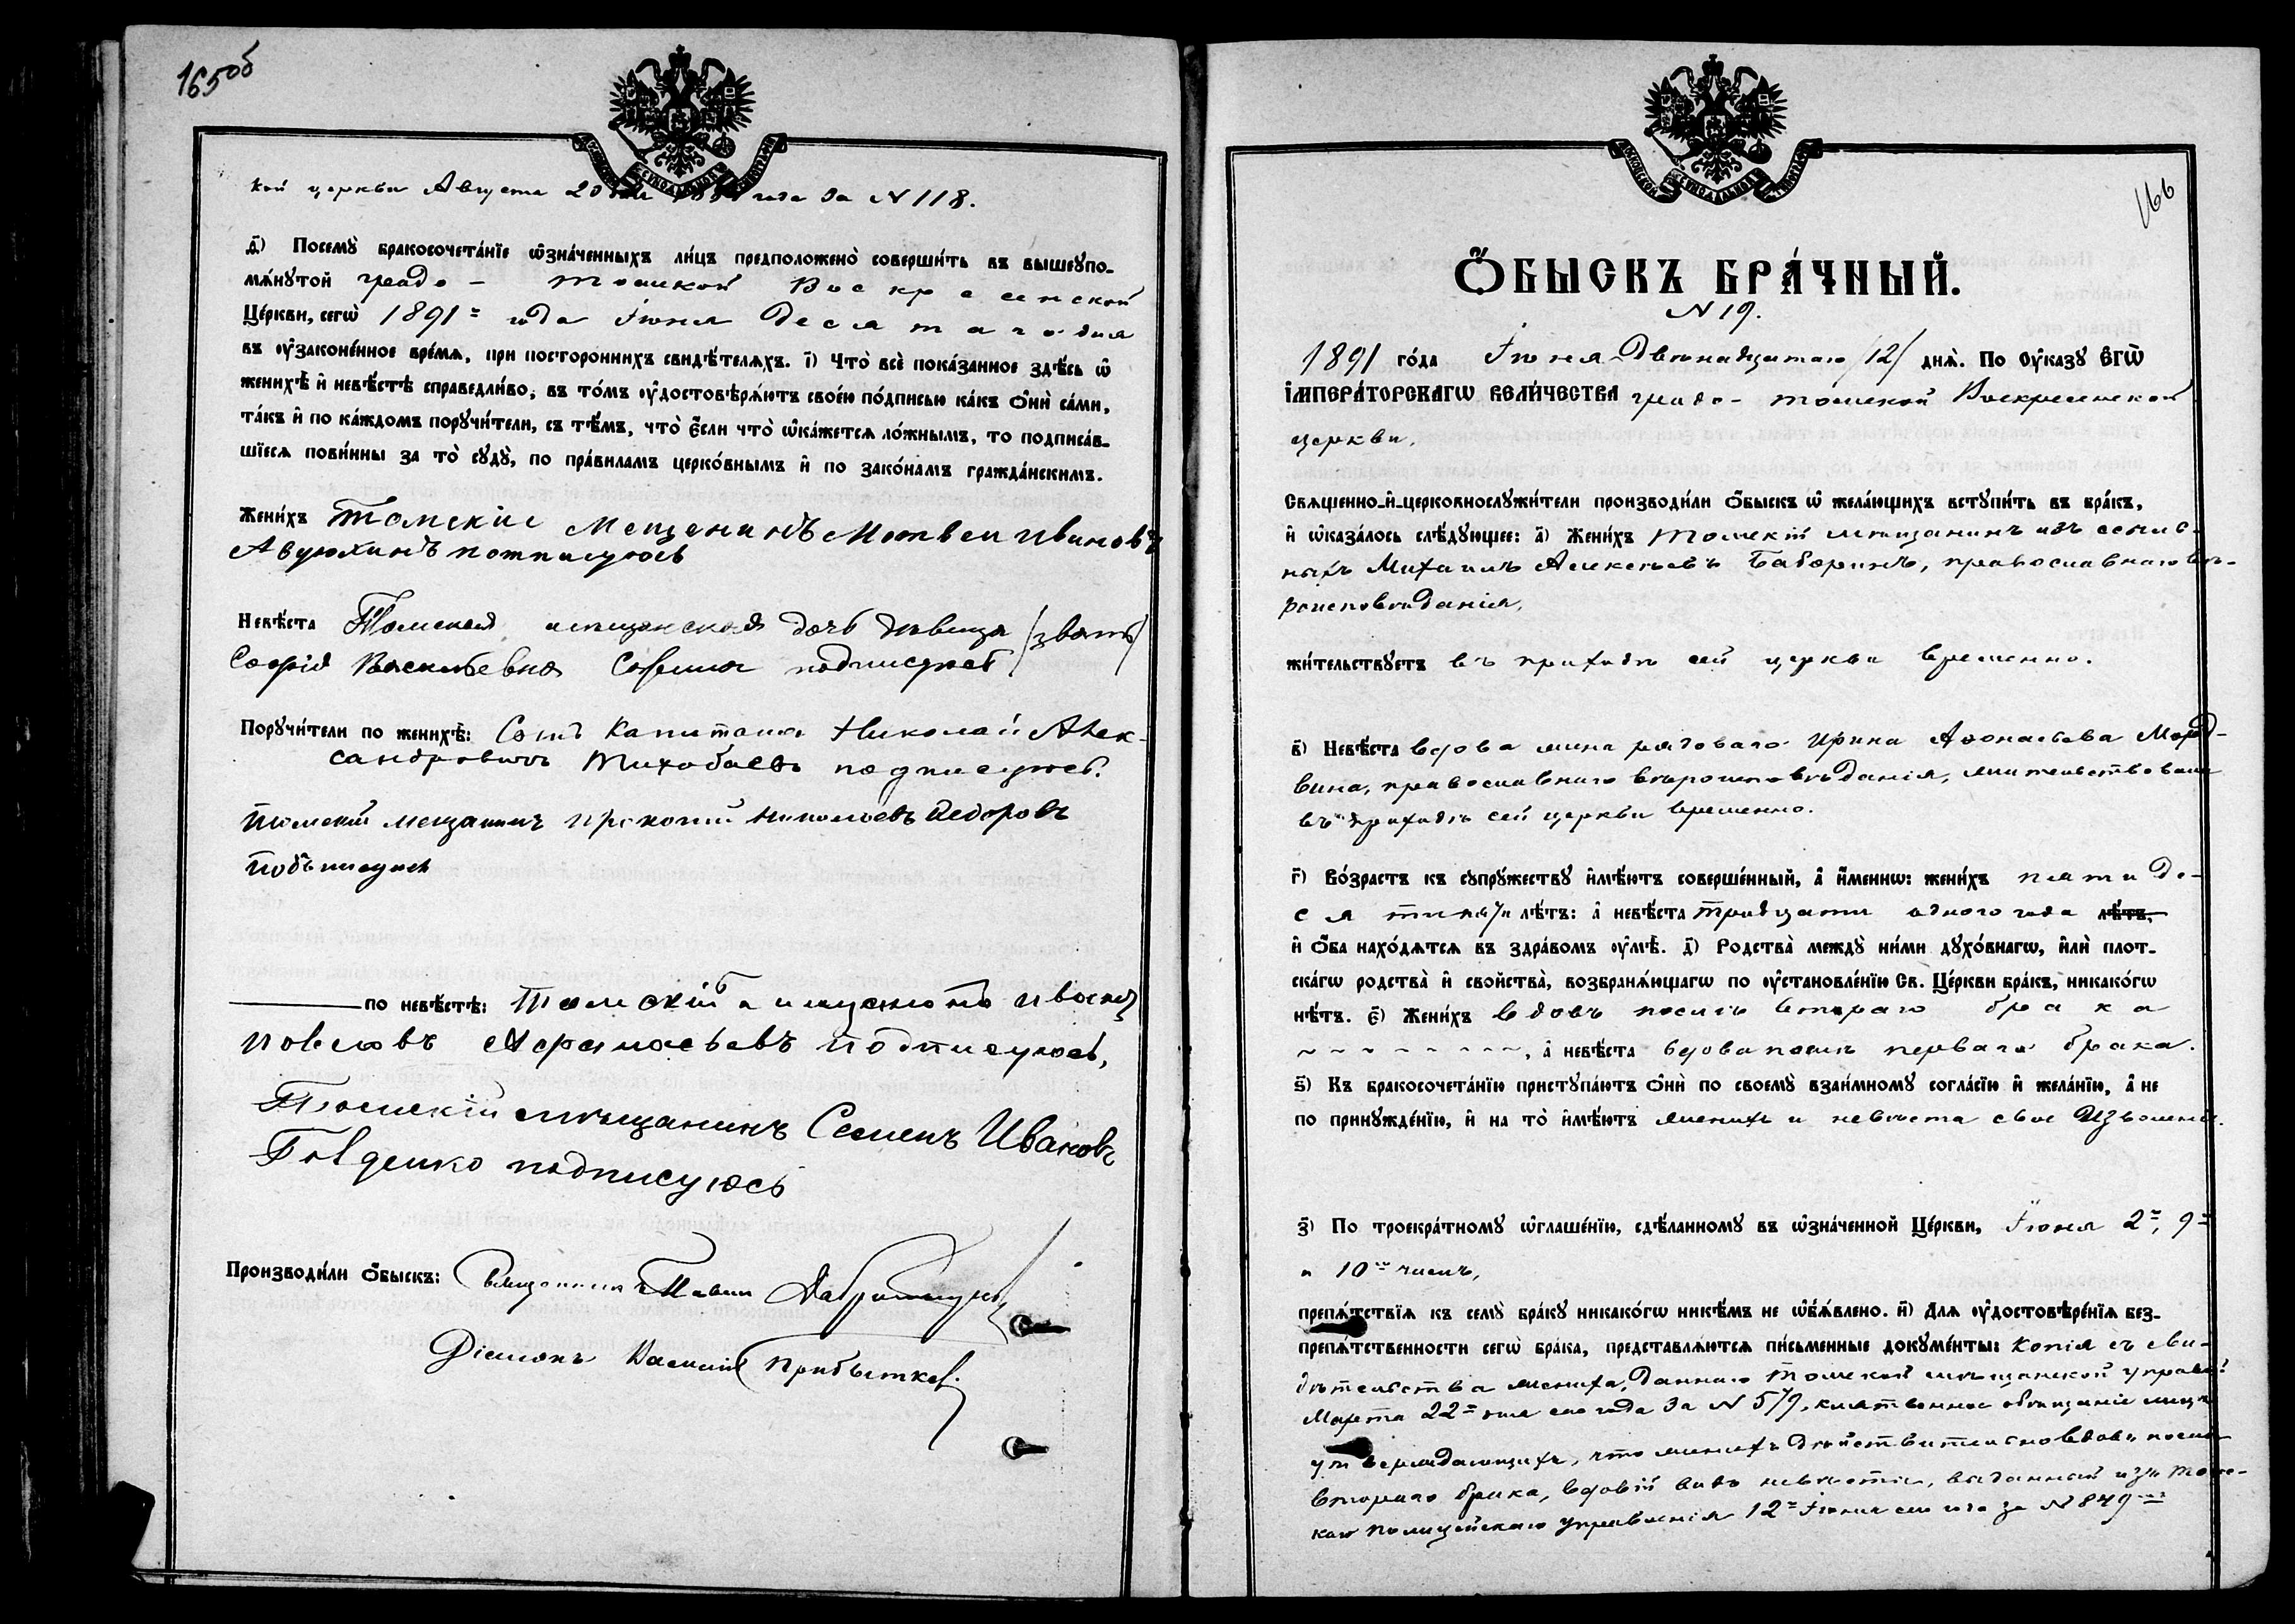 165об
кой церкви Августа 20 дня года за N 118.
д҃) Посемꙋ̀ бракосочета́нїе ѡ҆зна́ченныхъ ли́цъ предположено̀ соверши́ть въ вышеꙋпо-
мѧ́нꙋтой градо - Томской Воскресенской
Це́ркви, сегѡ̀ 1891= года Іюня десятаго дня
въ ᲂу҆законе́нное вре́мѧ, при постороннихъ свидѣ́телѧхъ. і҃) Что̀ всѐ пока́занное здѣ́сь ѡ҆
женихѣ̀ и҆ невѣ́стѣ справедли́во, въ то́мъ ᲂу҆достовѣрѧ́ютъ свое́ю по́дписью ка́къ ѻ҆нѝ са́ми,
та́къ и҆ по ка́ждомъ порꙋчи́тели, съ тѣ́мъ, что̀ є҆́сли что̀ ѡ҆ка́жетсѧ ло́жнымъ, то подписа́в-
шїесѧ пови́нны за то̀ сꙋдꙋ̀, по пра́виламъ церко́внымъ и҆ по зако́намъ гражда́нскимъ.
Жени́хъ Томскіе Мещенинъ Мотвеи Ивиновъ
Авдюхинъ потписуюсь
Невѣ́ста Томская мещанская дочь девица (звать)
Софія Васильевна подписуюсь
Порꙋчи́тели по женихѣ̀: Сынъ Капитана Николай Алек-
сандровичъ Тихобаевъ подписуюсь.
Томскій мещанинъ Прокопій Николаевъ Федоровъ
подъписуюсь
по невѣ́стѣ: Томскій
Афанасьевъ подписуюсь,
Томскій мѣщанинъ Семенъ Ивановъ
Говденко подписуюсь
Производи́ли ѻ҆́быскъ: Священникъ Павелъ
Діаконъ Василій Прибытков
166
Ѻ҆́БЫСКЪ БРА́ЧНЫЙ.
N 19.
1891 го́да Іюня Двѣнадцатаго /12/ днѧ̀. По Ꙋ҆ка́зꙋ Є҆ГѠ̀
І҆МПЕРА́ТОРСКАГѠ ВЕЛИ́ЧЕСТВА градо - Томской Воскресенской
церкви,
Свѧщенно-и҆-церковнослꙋжи́тели производи́ли ѻ҆́быскъ ѡ҆ жела́ющихъ встꙋпи́ть въ бра́къ,
и҆ ѡ҆каза́лось слѣ́дꙋющее: а҃) Жени́хъ Томскій мѣщанинъ изъ ссыль-
ныхъ Михаилъ Алексѣевъ Бабаринъ, православнаго вѣ-
роисповѣданія,
жи́тельствꙋетъ въ приходѣ сей церкви временно.
в҃) Невѣ́ста вдова рядоваго Ирина Афонасьева Морд-
вина, православнаго вѣроисповѣданія, жительствовала
въ приходѣ сей церкви временно.
г҃) Во́зрастъ къ сꙋпрꙋ́жествꙋ и҆мѣ́ютъ соверше́нный, а҆ и҆́меннѡ: жени́хъ пятиде-
сяти лѣ́тъ: а҆ невѣ́ста тридцати одного года лѣ́тъ,
и҆ ѻ҆́ба нахо́дѧтсѧ въ здра́вомъ ᲂу҆мѣ̀. д҃) Родства̀ междꙋ̀ ни́ми дꙋхо́внагѡ, и҆лѝ плот-
ска́гѡ родства̀ и҆ свойства̀, возбранѧ́ющагѡ по ᲂу҆становле́нїю Св. Це́ркви бра́къ, никако́гѡ
нѣ́тъ. є҃) Жени́хъ вдовъ послѣ втораго брака
~ ~ ~ ~ ~ ~ ~ ~, а҆ невѣ́ста вдова послѣ перваго брака.
ѕ҃) Къ бракосочета́нїю пристꙋпа́ютъ ѻ҆нѝ по своемꙋ̀ взаи́мномꙋ согла́сїю и҆ жела́нїю, а҆ не
по принꙋжде́нїю, и҆ на то̀ и҆мѣ́ютъ женихъ и невѣста свое
з҃) По троекра́тномꙋ ѡ҆глаше́нїю, сдѣ́ланномꙋ въ ѡ҆зна́ченной Це́ркви, Іюня 2=, 9=
и 10= чиселъ,
препѧ́тствїѧ къ семꙋ̀ бра́кꙋ никако́гѡ никѣ́мъ не ѡ҆б̾ѧ́влено. и҃) Длѧ ᲂу҆достовѣре́нїѧ без-
препѧ́тственности сегѡ̀ бра́ка, представлѧ́ютсѧ пи́сьменные докꙋме́нты: Копія съ сви-
дѣтельства жениха, даннаго Томской мѣщанской управой
Марта 22= дня сего года за N 579, клятвенное обѣщаніе лицъ
утверждающихъ, что женихъ дѣйствительно вдовъ послѣ
втораго брака, вдовій видъ невѣсты, выданный изъ Томс-
каго полицейскаго управленія 12= Іюня сего года за N 849